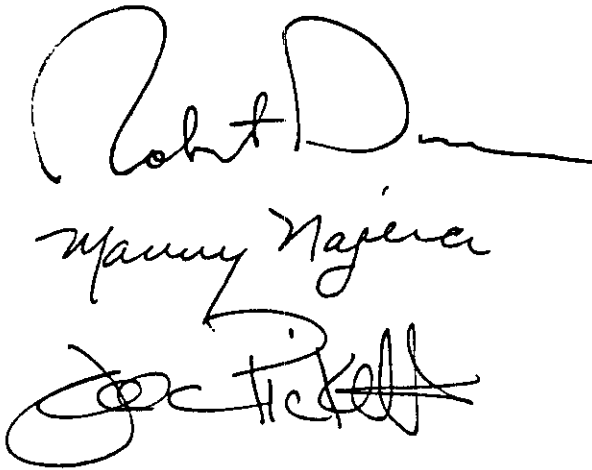 Robert D
Manny Najera
Joe Pickett